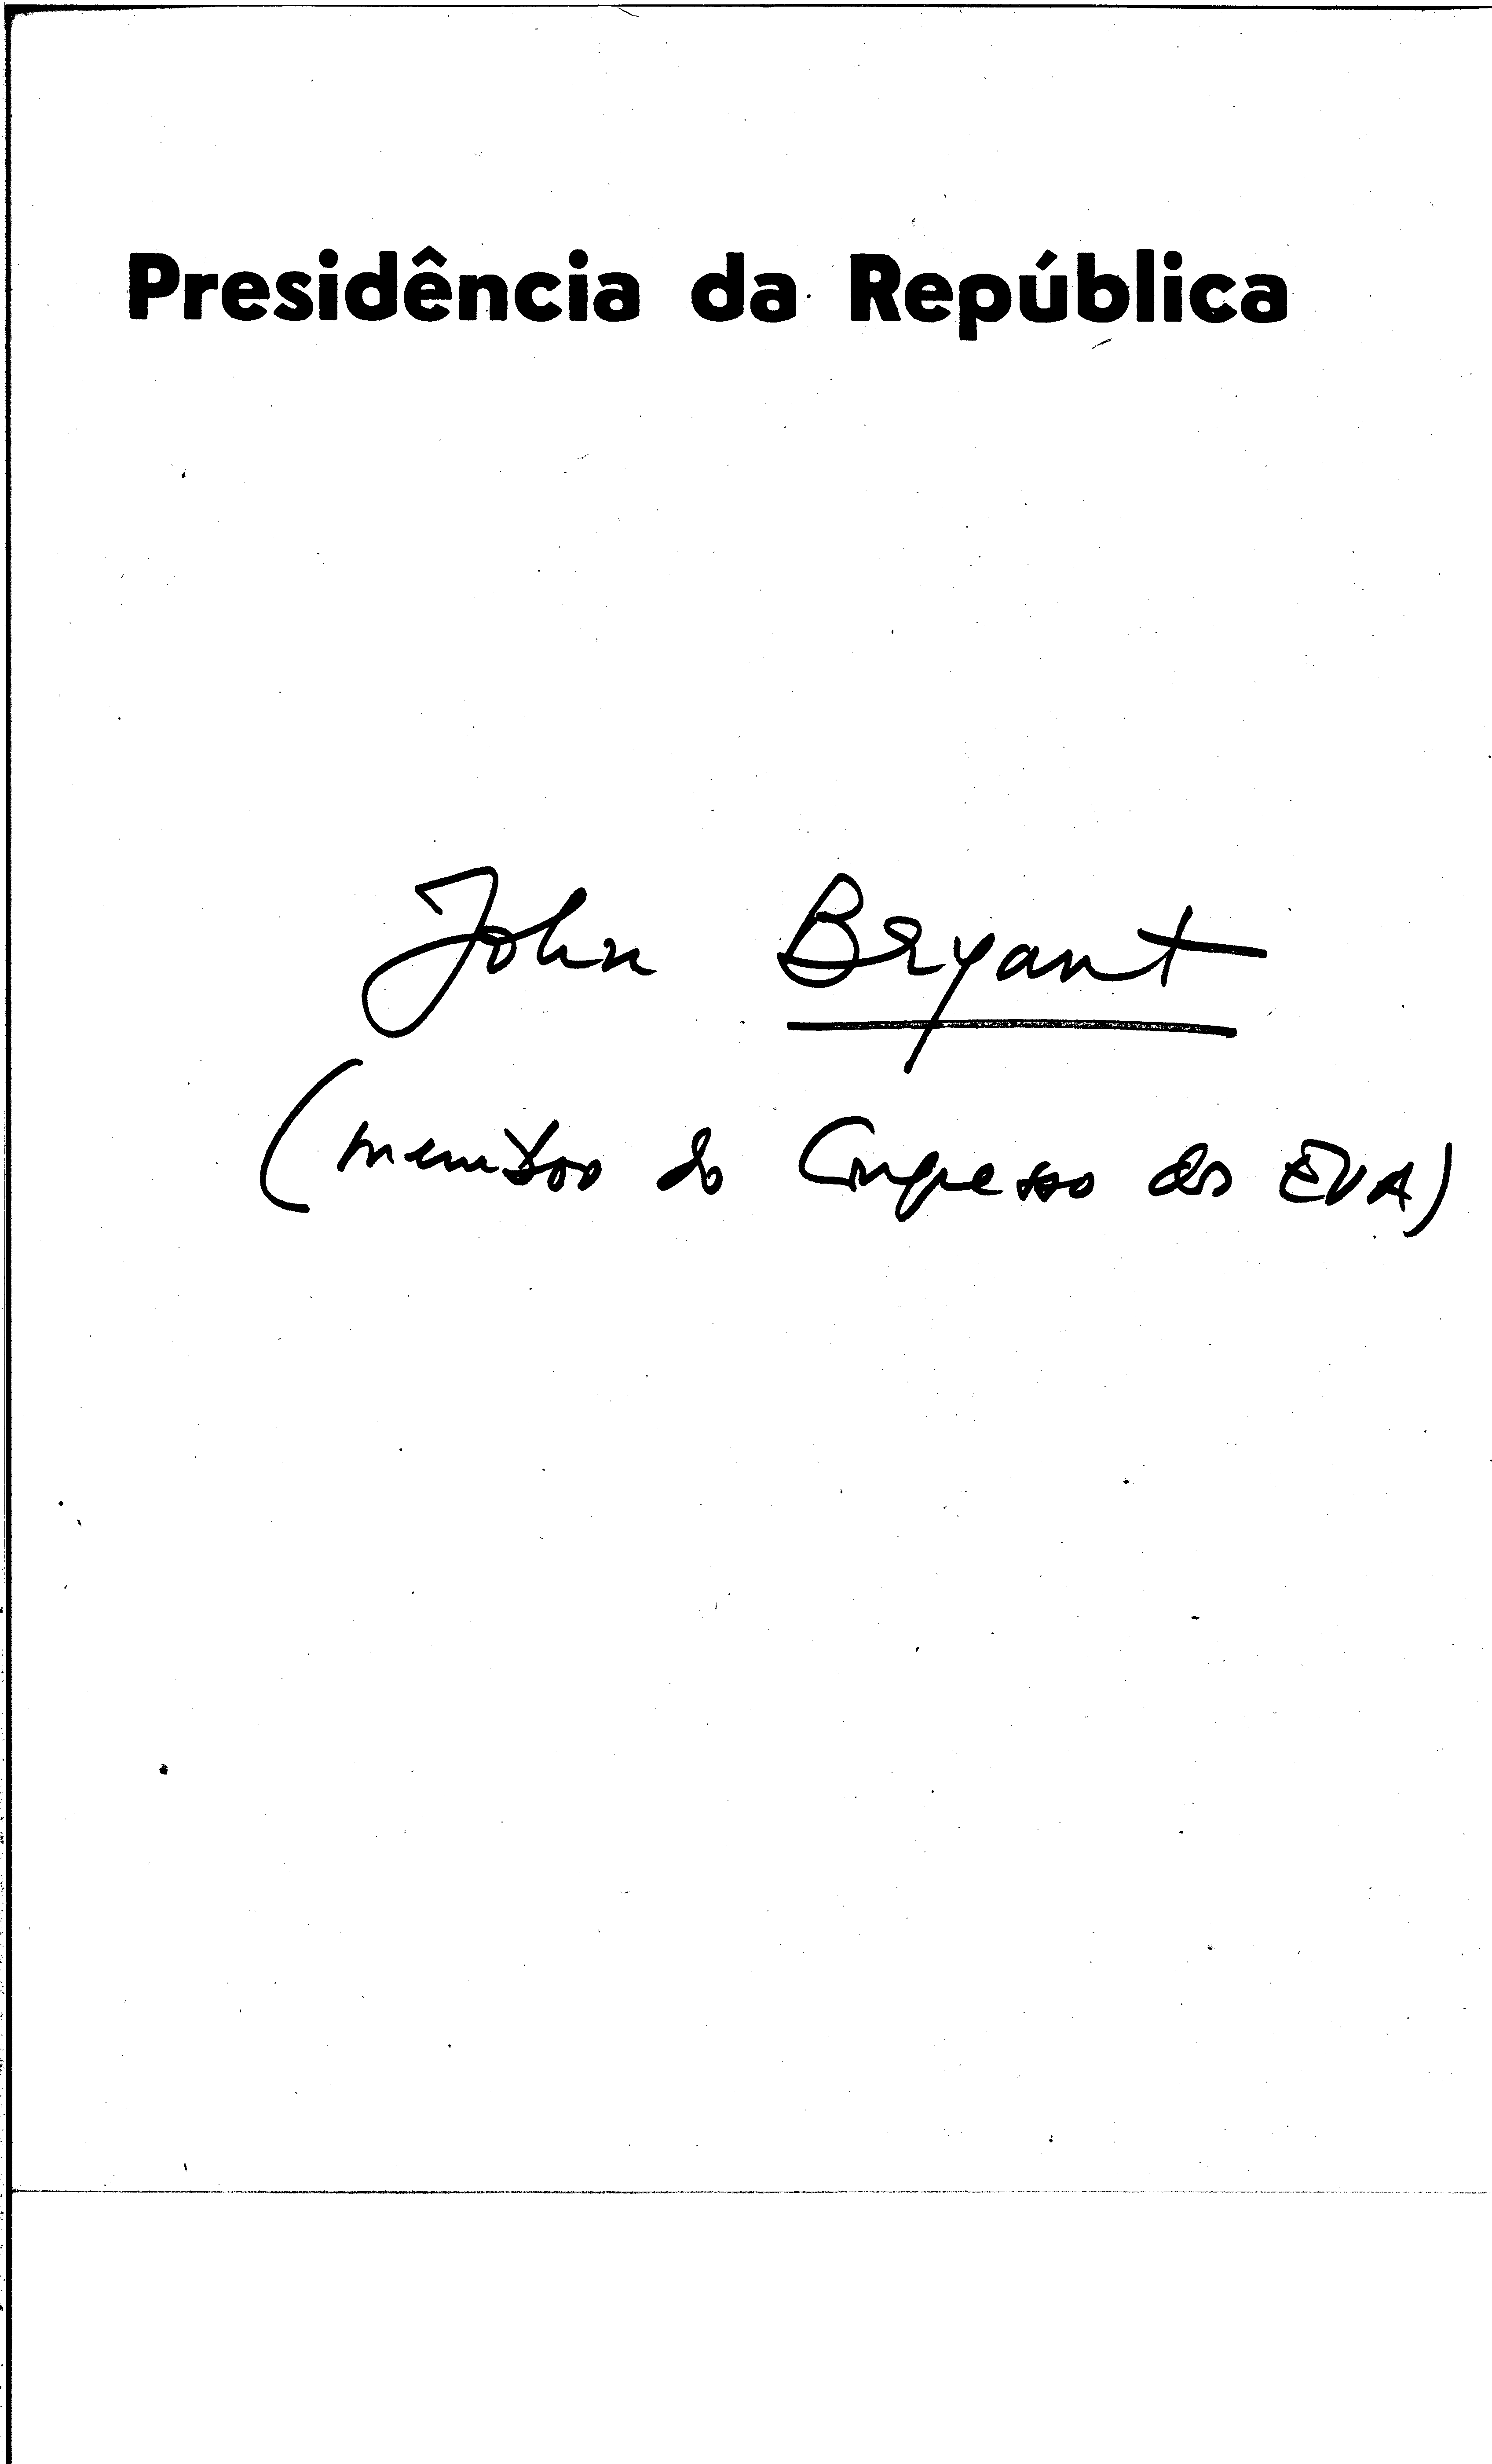 Presidência da República
John Bryant
(membro do Congresso dos EUA)